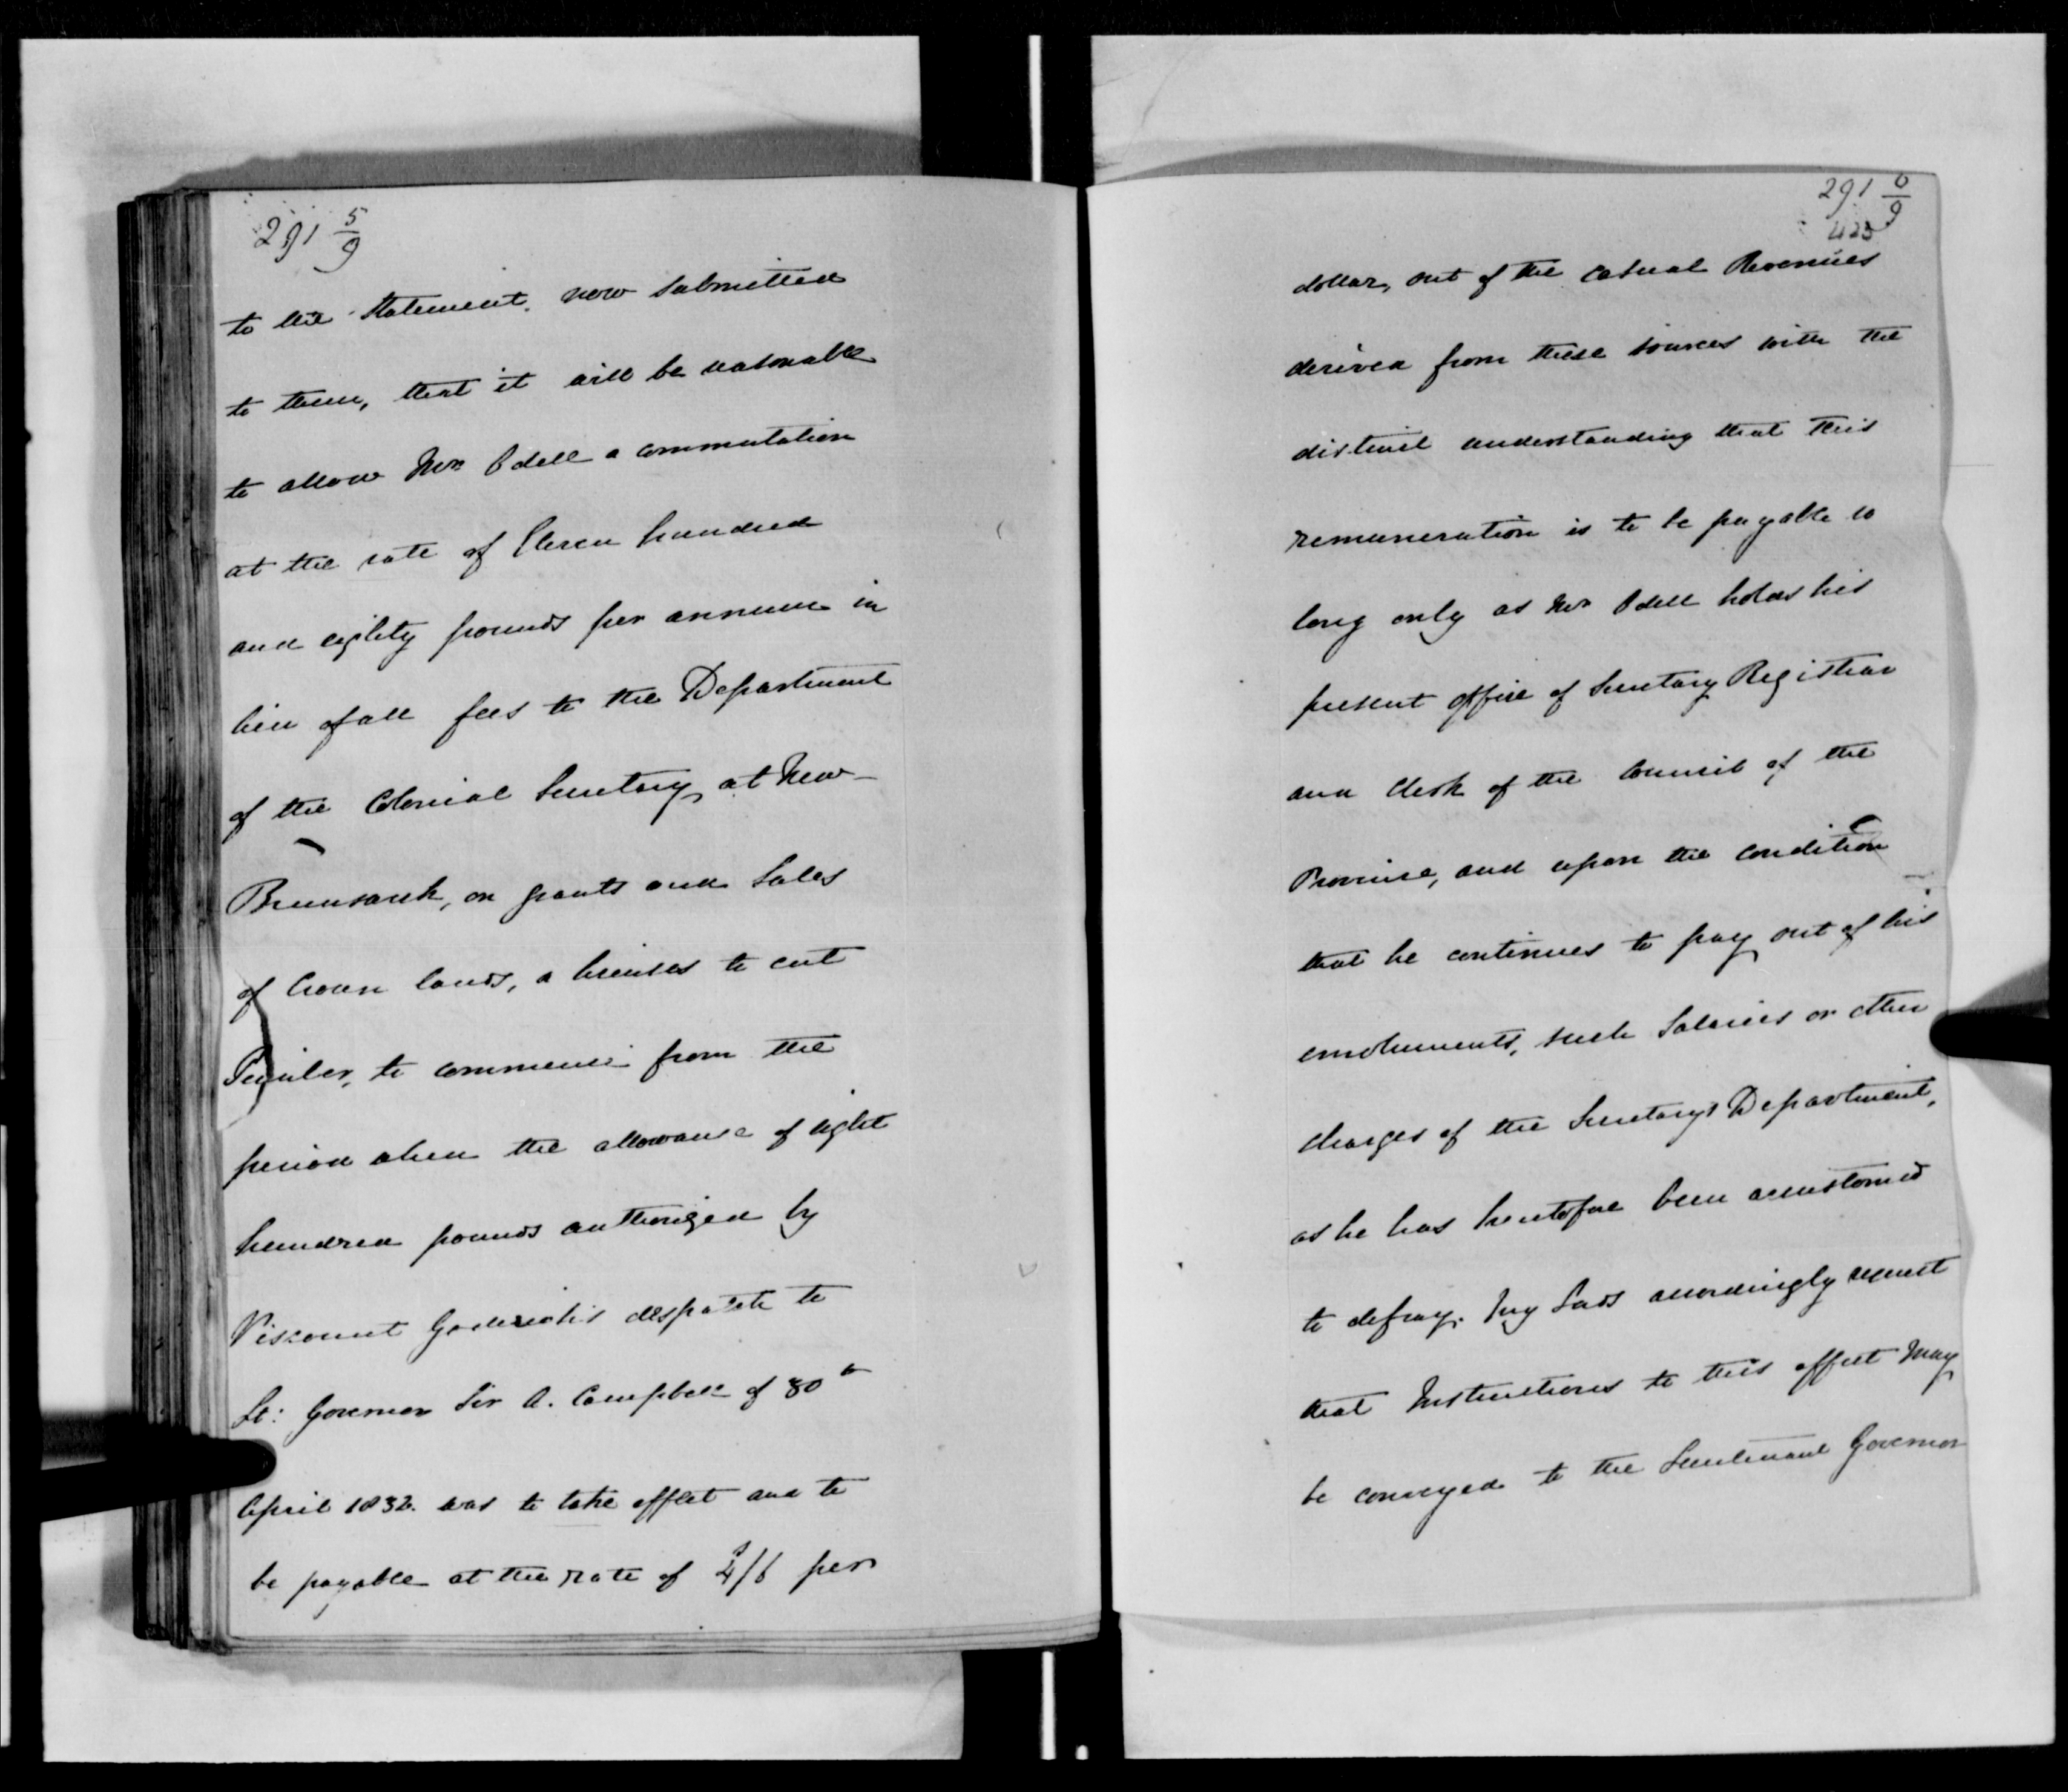 291 5/9
to the Statement, now submitted
to them, that it will be reasonable
to allow Mr. Odell a commutation
at the rate of Eleven hundred
and eighty pounds per annum in
lieu of all fees to the Department
of the Colonial Secretary at New-
Brunswick, on grants and Sales
of Crown lands, or licenses to cut
Timber, to commence from the
period when the allowance of eight
hundred pounds authorized by
Viscount Goderich's despatch to
Lt: Governor Sir A. Campbell of 30th
April 1832. was to take effect and to
be payable at the rate of 4s/6 per
291 6/9
423
dollar, out of the casual Revenues
derived from these sources with the
distinct understanding that this
remuneration is to be payable so
long only as Mr. Odell holds his
present office of Secretary Registrar
and Clerk of the Council of the
Province, and upon the condition
that he continues to pay out of his
emoluments, such Salaries or other
charges of the Secretary's Department,
as he has heretofore been accustomed
to defray. My Lords accordingly request
that Instructions to this effect may
be conveyed to the Lieutenant Governor